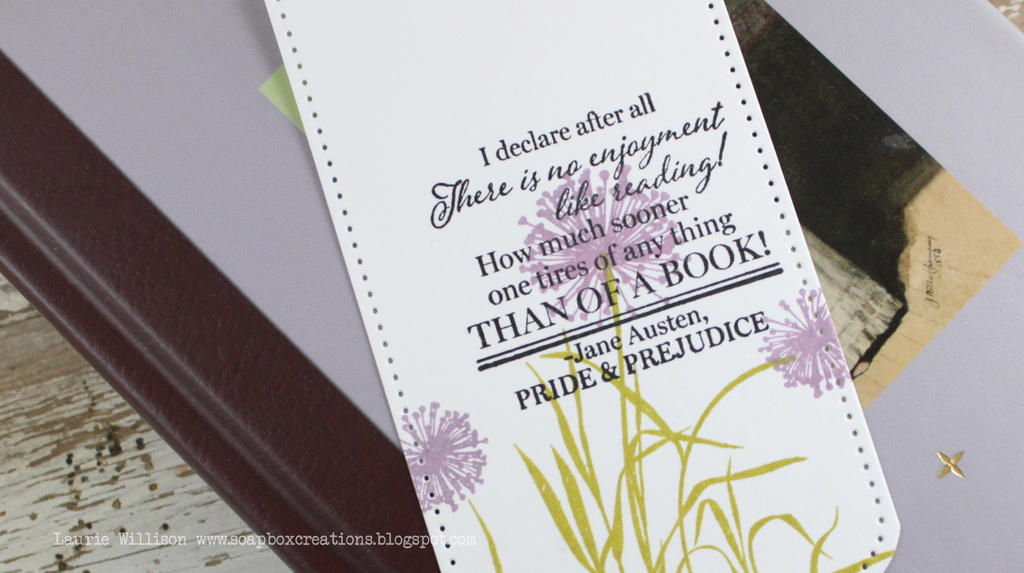 I declare after all
There is no enjoyment
like reading!
How much sooner
one tires of any thing
THAN OF A BOOK!
-Jane Austen,
PRIDE & PREJUDICE
Laurie Willison www.soapboxcreations.blogspot.com